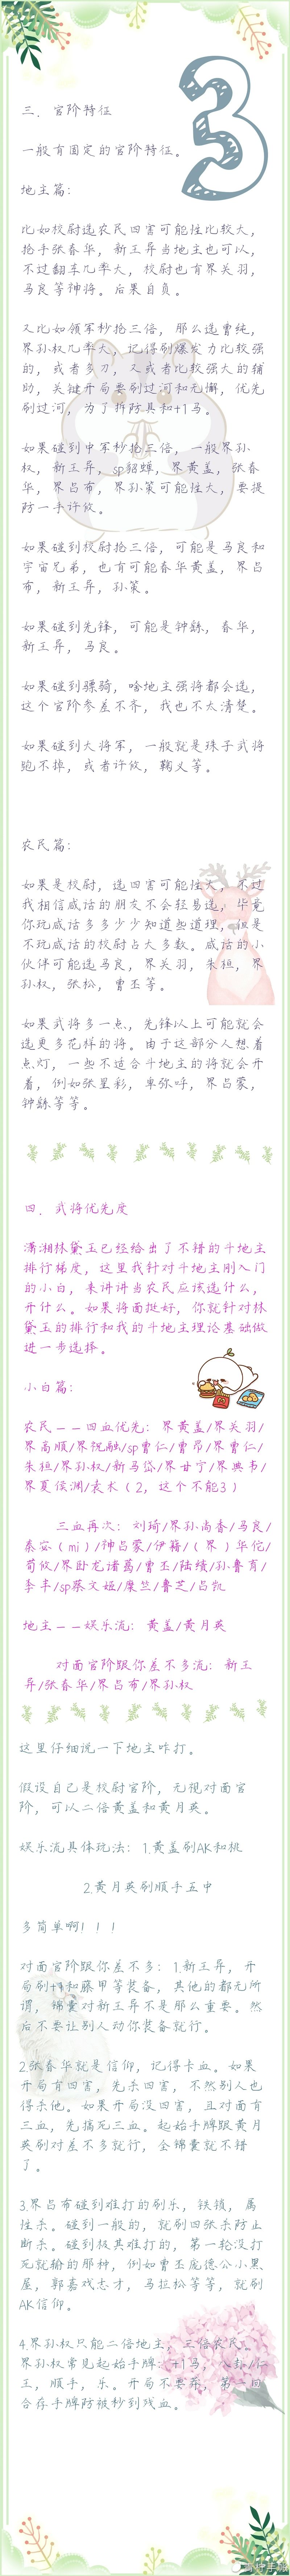 3
三．官阶特征
一般有固定的官阶特征。
地主篇：
比如校尉选农民四害可能性比较大，
抢手张春华，新王异当地主也可以，
不过翻车几率大，校尉也有界关羽，
马良等神将。后果自负。
又比如领军秒抢三倍，那么选曹纯，
界孙权几率大，记得刷爆发力比较强
的，或者多刀，又或者比较强大的辅
助，关键开局要刷过河和无懈，优先
刷过河，为了拆防具和+1马。
如果碰到中军秒抢三倍，一般界孙
权，新王异，sp貂蝉，界黄盖，张春
华，界吕布，界孙策可能性大，要提
防一手许攸。
如果碰到校尉抢三倍，可能是马良和
宇宙兄弟，也有可能春华黄盖，界吕
布，新王异，孙策。
如果碰到先锋，可能是钟繇，春华，
新王异，马良。
如果碰到骠骑，啥地主强将都会选，
这个官阶参差不齐，我也不太清楚。
如果碰到大将军，一般就是珠子武将
跑不掉，或者许攸，鞠义等。
农民篇：
如果是校尉，选四害可能性大，不过
我相信咸话的朋友不会轻易选，毕竟
你玩咸话多多少少知道些道理，但是
不玩咸话的校尉占大多数。咸话的小
伙伴可能选马良，界关羽，朱桓，界
孙权，张松，曹丕等。
如果武将多一点，先锋以上可能就会
选更多花样的将。由于这部分人想着
点灯，一些不适合斗地主的将就会开
着，例如张星彩，卑弥呼，界吕蒙，
钟繇等等。
四．武将优先度
潇湘林黛玉已经给出了不错的斗地主
排行梯度，这里我针对斗地主刚入门
的小白，来讲讲当农民应该选什么，
开什么。如果将面挺好，你就针对林
黛玉的排行和我的斗地主理论基础做
进一步选择。
小白篇：
农民——四血优先：界黄盖/界关羽/
界高顺/界祝融/sp曹仁/曹昂/界曹仁/
朱桓/界孙权/新马岱/界甘宁/界典韦/
界夏侯渊/袁术（2，这个不能3）
三血再次：刘琦/界孙尚香/马良/
秦宓（mi）/神吕蒙/伊籍/（界）华佗/
荀攸/界卧龙诸葛/曹丕/陆绩/孙鲁育/
李丰/sp蔡文姬/糜竺/鲁芝/吕凯
地主——娱乐流：黄盖/黄月英
对面官阶跟你差不多流：新王
异/张春华/界吕布/界孙权
这里仔细说一下地主咋打。
假设自己是校尉官阶，无视对面官
阶，可以二倍黄盖和黄月英。
娱乐流具体玩法：1.黄盖刷AK和桃
2.黄月英刷顺手五中
多简单啊！！！
对面官阶跟你差不多：1.新王异，开
局刷+1和藤甲等装备，其他的都无所
谓，锦囊对新王异不是那么重要。然
后不要让别人动你装备就行。
2.张春华就是信仰，记得卡血。如果
开局有四害，先杀四害，不然别人也
得杀他。如果开局没四害，且对面有
三血，先搞死三血。起始手牌跟黄月
英刷对差不多就行，全锦囊就不错
了。
3.界吕布碰到难打的刷乐，铁锁，属
性杀。碰到一般的，就刷四张杀防止
断杀。碰到极其难打的，第一轮没打
死就输的那种，例如曹丕庞德公小黑
屋，郭嘉戏志才，马拉松等等，就刷
AK信仰。
4.界孙权只能二倍地主，三倍农民。
界孙权常见起始手牌：+1马，八卦/仁
王，顺手，乐。开局不要莽，第一回
合存手牌防被秒到残血。